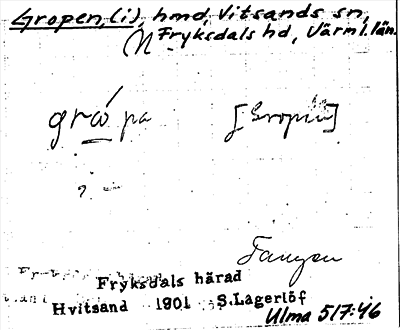 Gropen, (i), hmd, Vitsands sn,
N Fryksdals hd, Värml. län.
grópa [Gropen]
Tangen
Fryksdals härad
Hvitsand 1901 S. Lagerlöf
Ulma 517:46